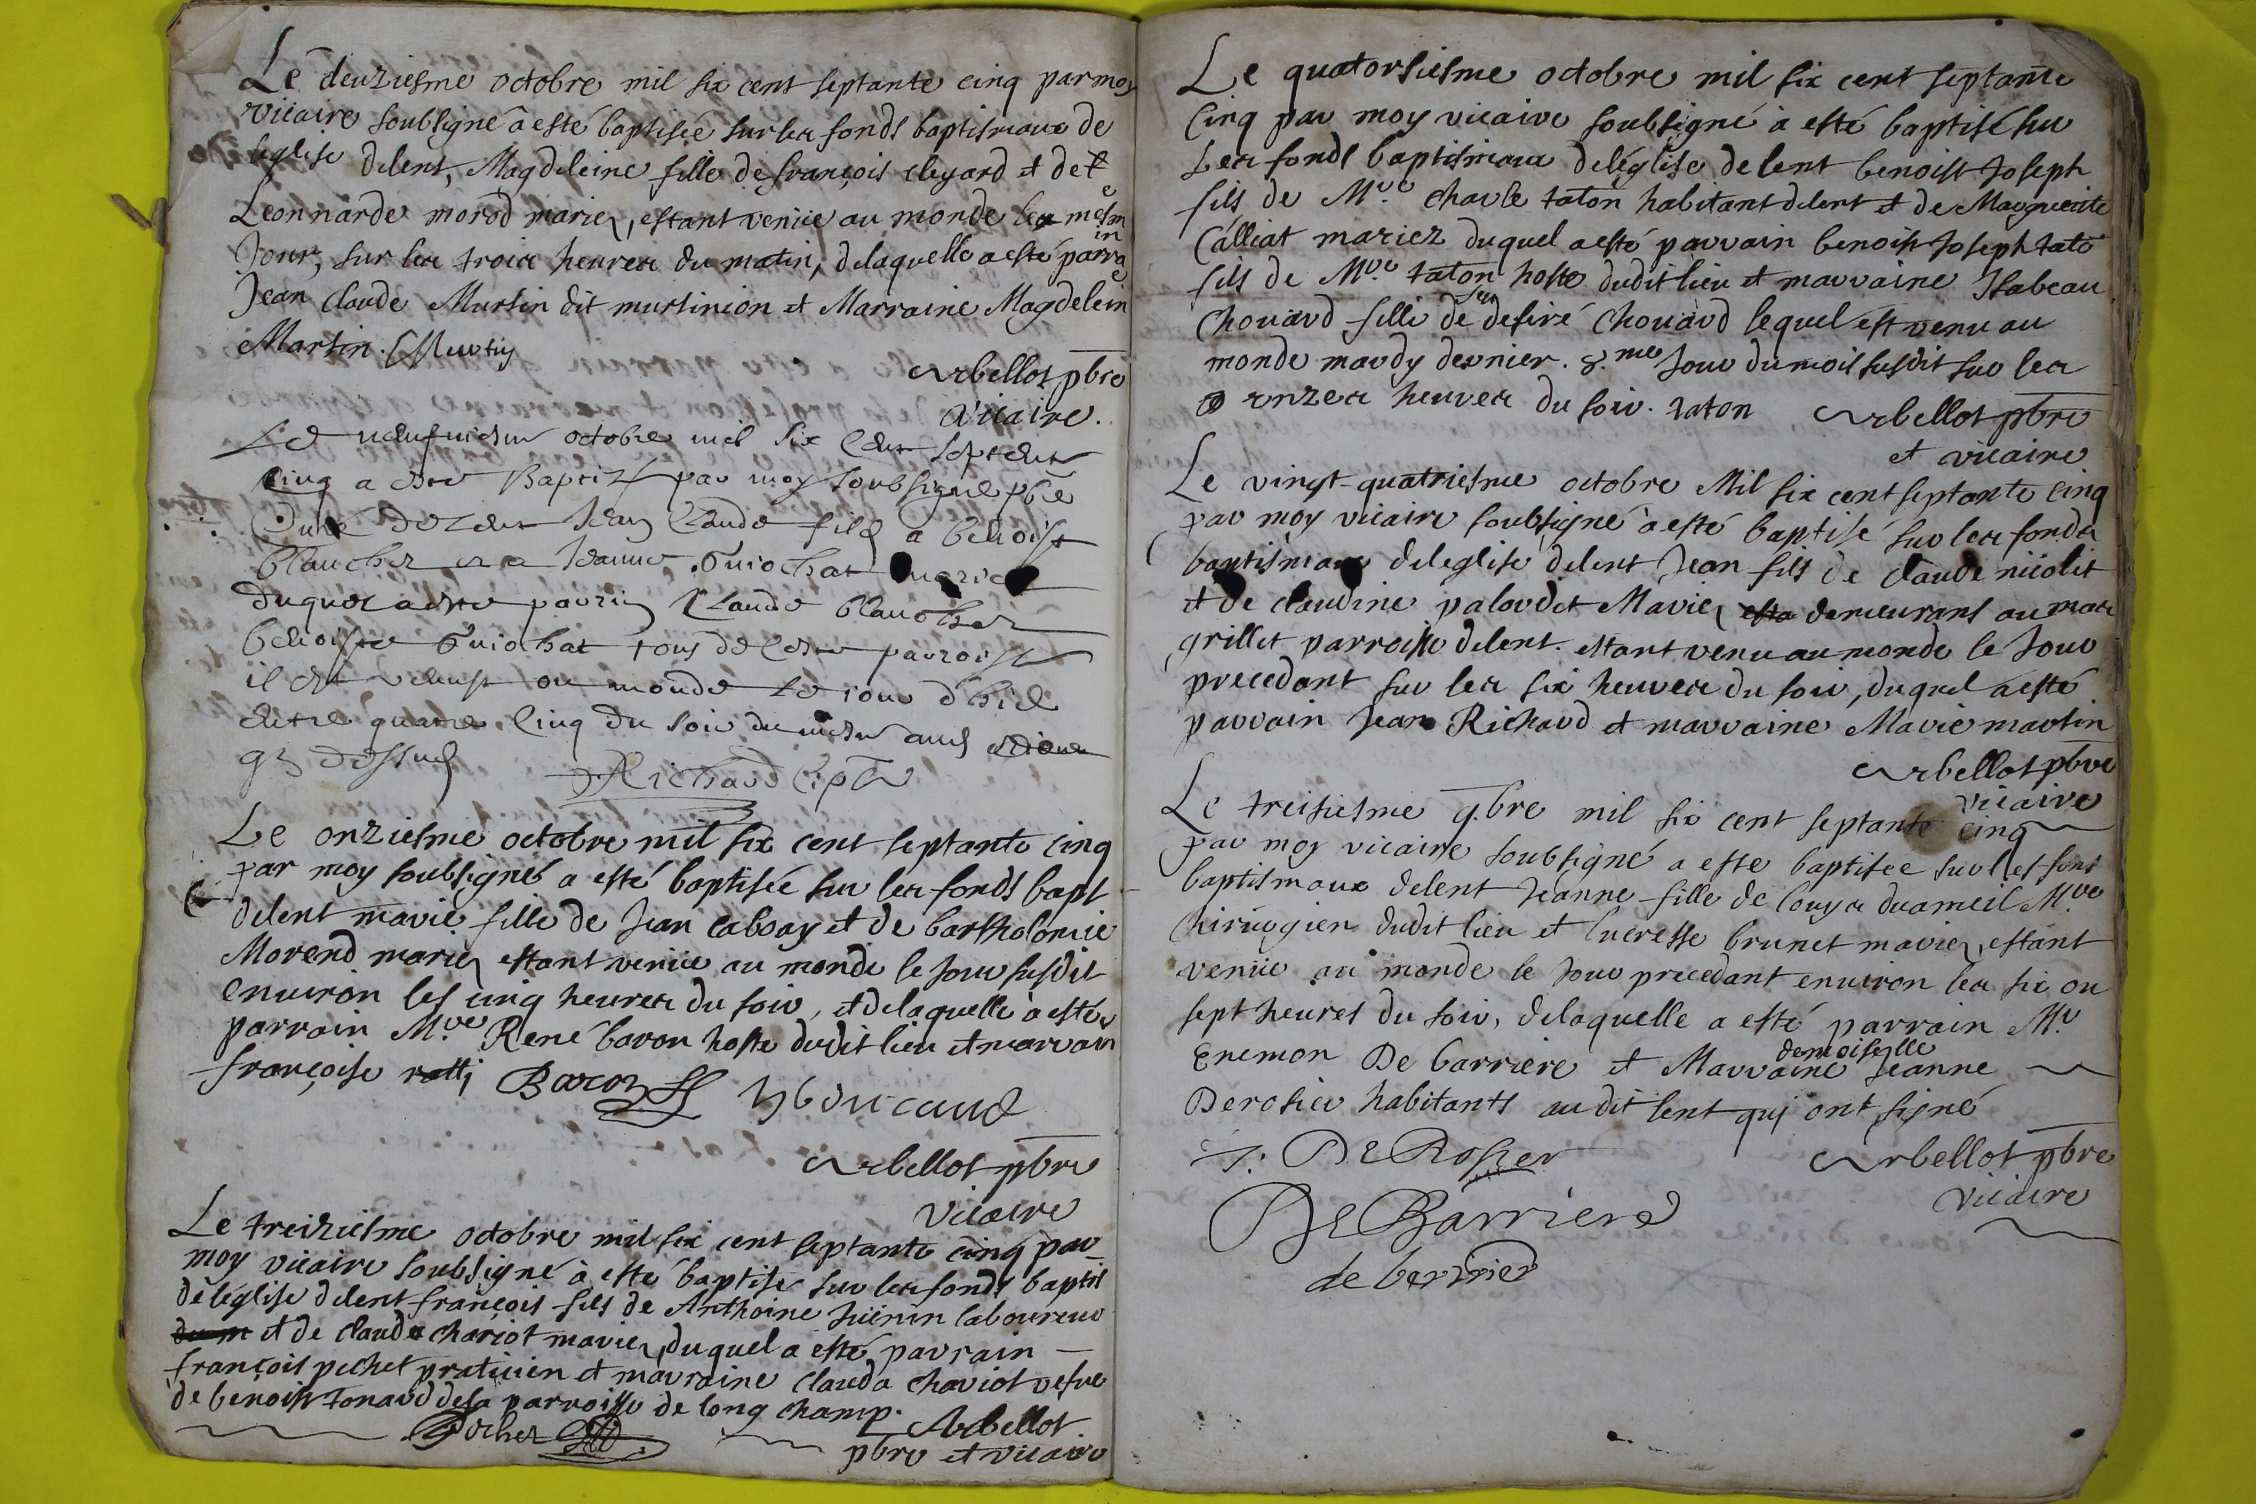 Le deuziesme octobre mil six cent septante cinq par moy
vicaire soubsigné à esté baptisée sur les fonds baptismaux de
leglise delent, Magdeleine fille de françois cleyard et de
Leonnarde morod mariez, estant venüe au monde les mesme
Jour, sur les trois heures du matin, delaquelle a esté parrain
Jean claude Murtin dit murtinion et Marraine Magdelein
Martin. CMurtin
Arbellot pbre
vicaire.
Le neufuiesme octobre mil six cent septente
cinq a este Baptizé par moy soubsigne pbre
Curé de Lent Jean Claude filz a benoist
blanchet et a Jeanne Guiochat mariez
duquel a este parrin Claude blanchet
benoiste Guiochat tous de parroisse
il est venust au monde le iour d'hier
entre quatre cinq du soir du mesme
q dessus Richard
Le onziesme octobre mil six cent septante cinq
par moy soubsigné a esté baptisée sur les fonds bapt
delent marie fille de Jean cabsay et de bartholomie
Morend mariez estant venüe au monde le Jour susdit
environ les cinq heures du soir, et delaquelle à esté
parrain M.re René baron hoste dudit lieu et marrain
françoise Baron
Arbellot pbre
vicaire
Le treiziesme octobre mil six cent septante cinq par
moy vicaire soubsigné à esté baptisé sur les fonds baptis
de léglise delent françois fils de Anthoine Juenin laboureur
et de clauda chariot mariez, duquel a esté parrain
françois pichet praticien et marraine clauda chariot vefve
de benoist tonard de la parroisse de long champ.
Pochet Arbellot
pbre et vicaire
Le quatorsiesme octobre mil six cent septante
Cinq par moy vicaire soubsigné à esté baptisé sur
Les fonds baptismaux deléglise delent benoist Joseph
fils de M.re charle taton habitant delent et de Marguerite
Calliat mariez duquel a esté parrain benoist Joseph tatō
fils de M.re taton hoste dudit lieu et marraine Isabeau
Chouard fille de feu desiré Chouard lequel est venu au
monde mardy dernier. 8.me Jour du mois susdit sur les
onzes heures du soir. taton Arbellot pbre
et vicaire
Le vingt-quatriesme octobre Mil six cent septante cinq
par moy vicaire soubsigné à esté baptisé sur les fonds
baptismaux deleglise delent Jean fils de claude nicolit
et de claudine palordet Mariez demeurans au mas
grillet parroisse delent. estant venu au monde le Jour
precedant sur les six heures du soir, duquel a esté
parrain Jean Richard et marraine Marie martin
Arbellot pbre
vicaire
Le treisiesme 9.bre mil six cent septante cinq
par moy vicaire soubsigné a esté baptisée sur les fons
baptismaux delent Jeanne fille de Louys duameil M.re
Chirurgien dudit lieu et lucresse brunet mariez, estant
venüe au monde le Jour precedant environ les six ou
sept heures du soir, delaquelle a esté parrain M.r
Enemon De barriere et Marraine demoiselle Jeanne
Derosier habitants audit lent qui ont signé
J. De Rosier Arbellot pbre
vicaire
De Barriere